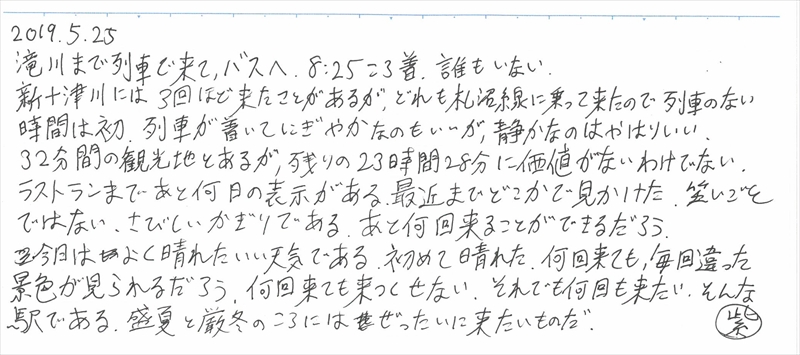 2019.5.25
滝川まで列車で来て,バスへ. 8:25ころ着. 誰もいない.
新十津川には3回ほど来たことがあるが,どれも札沼線に乗って来たので列車のない
時間は初. 列車が着いてにぎやかなのもいいが,静かなのはやはりいい.
32分間の観光地とあるが,残りの23時間28分に価値がないわけでない.
ラストランまであと何日の表示がある.最近までどこかで見かけた. 笑いごと
ではない. さびしいかぎりである. あと何回来ることができるだろう.
今日はよく晴れたいい天気である.初めて晴れた. 何回来ても,毎回違った
景色が見られるだろう. 何回来ても来つくせない. それでも何回も来たい. そんな
駅である. 盛夏と厳冬のころにはぜったいに来たいものだ.
紫